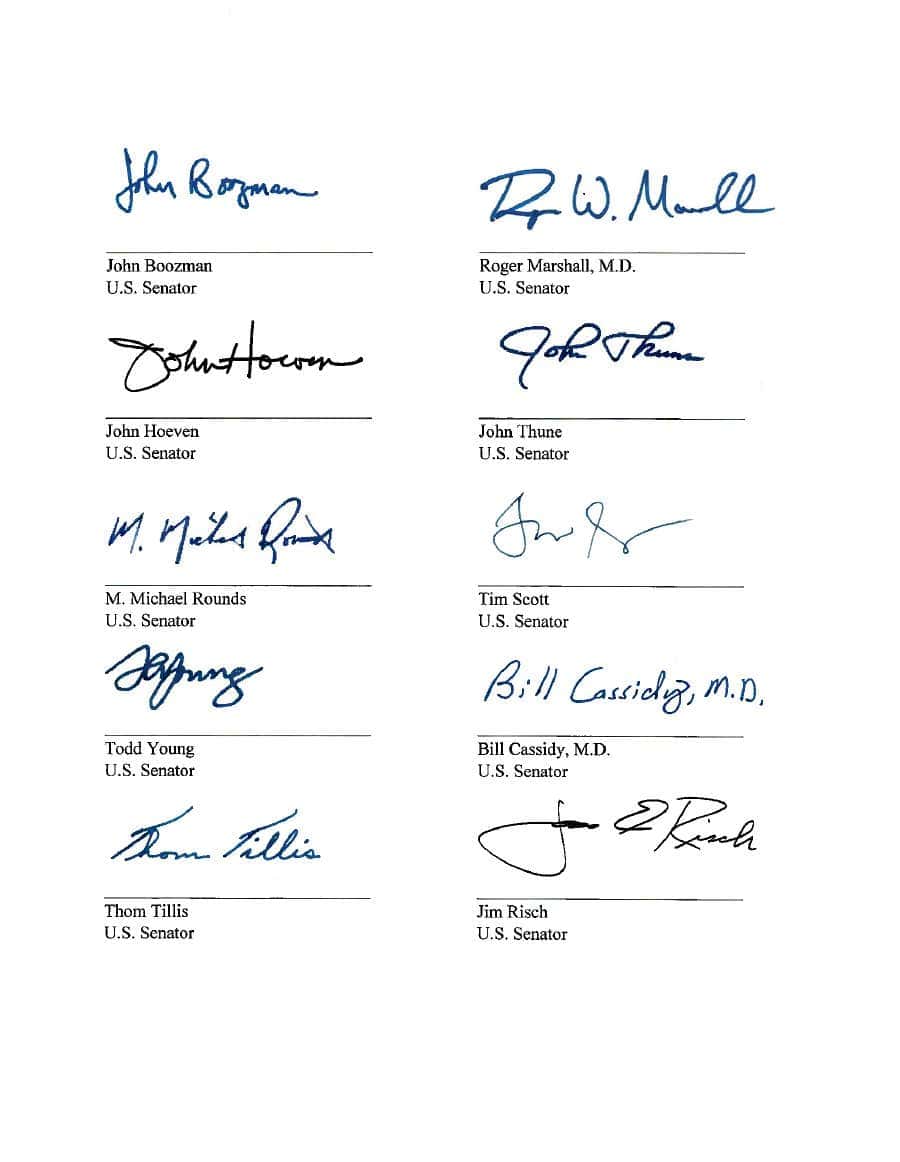 John Boozman
Roger W. Marshall
John Boozman
Roger Marshall, M.D.
U.S. Senator
U.S. Senator
John Hoeven
John Thune
John Hoeven
John Thune
U.S. Senator
U.S. Senator
M. Michael Rounds
Tim
M. Michael Rounds
Tim Scott
U.S. Senator
U.S. Senator
Young
Bill Cassidy, M.D.
Todd Young
Bill Cassidy, M.D.
U.S. Senator
U.S. Senator
Thom Tillis
Jim E Risch
Thom Tillis
Jim Risch
U.S. Senator
U.S. Senator